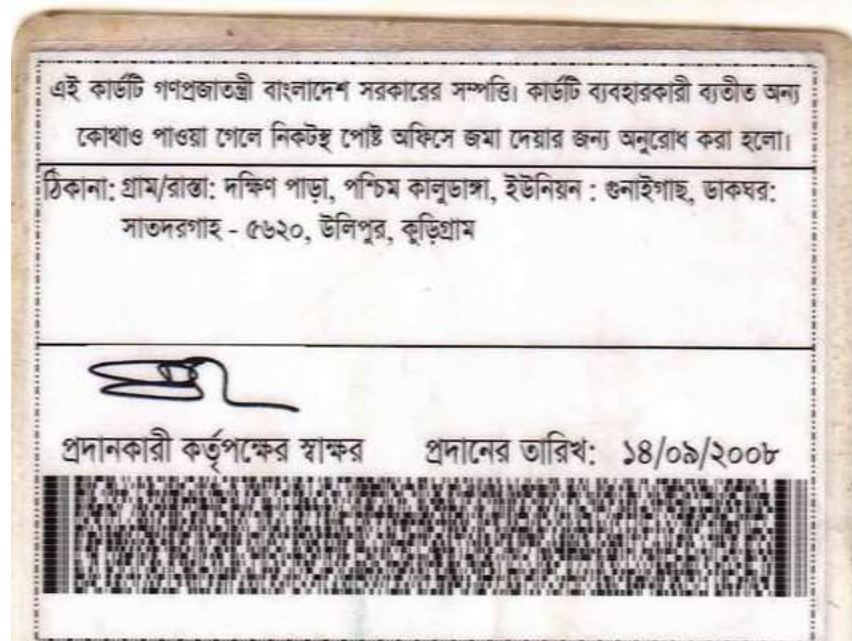 এই কার্ডটি গণপ্রজাতন্ত্রী বাংলাদেশ সরকারের সম্পত্তি। কার্ডটি ব্যবহারকারী ব্যতীত অন্য
কোথাও পাওয়া গেলে নিকটস্থ পোষ্ট অফিসে জমা দেয়ার জন্য অনুরোধ করা হলো।
ঠিকানা: গ্রাম/রাস্তা: দক্ষিণ পাড়া, পশ্চিম কালুডাঙ্গা, ইউনিয়ন : গুনাইগাছ, ডাকঘর:
সাতদরগাহ - ৫৬২০, উলিপুর, কুড়িগ্রাম
প্রদানকারী কর্তৃপক্ষের স্বাক্ষর প্রদানের তারিখ: ১৪/০৯/২০০৮